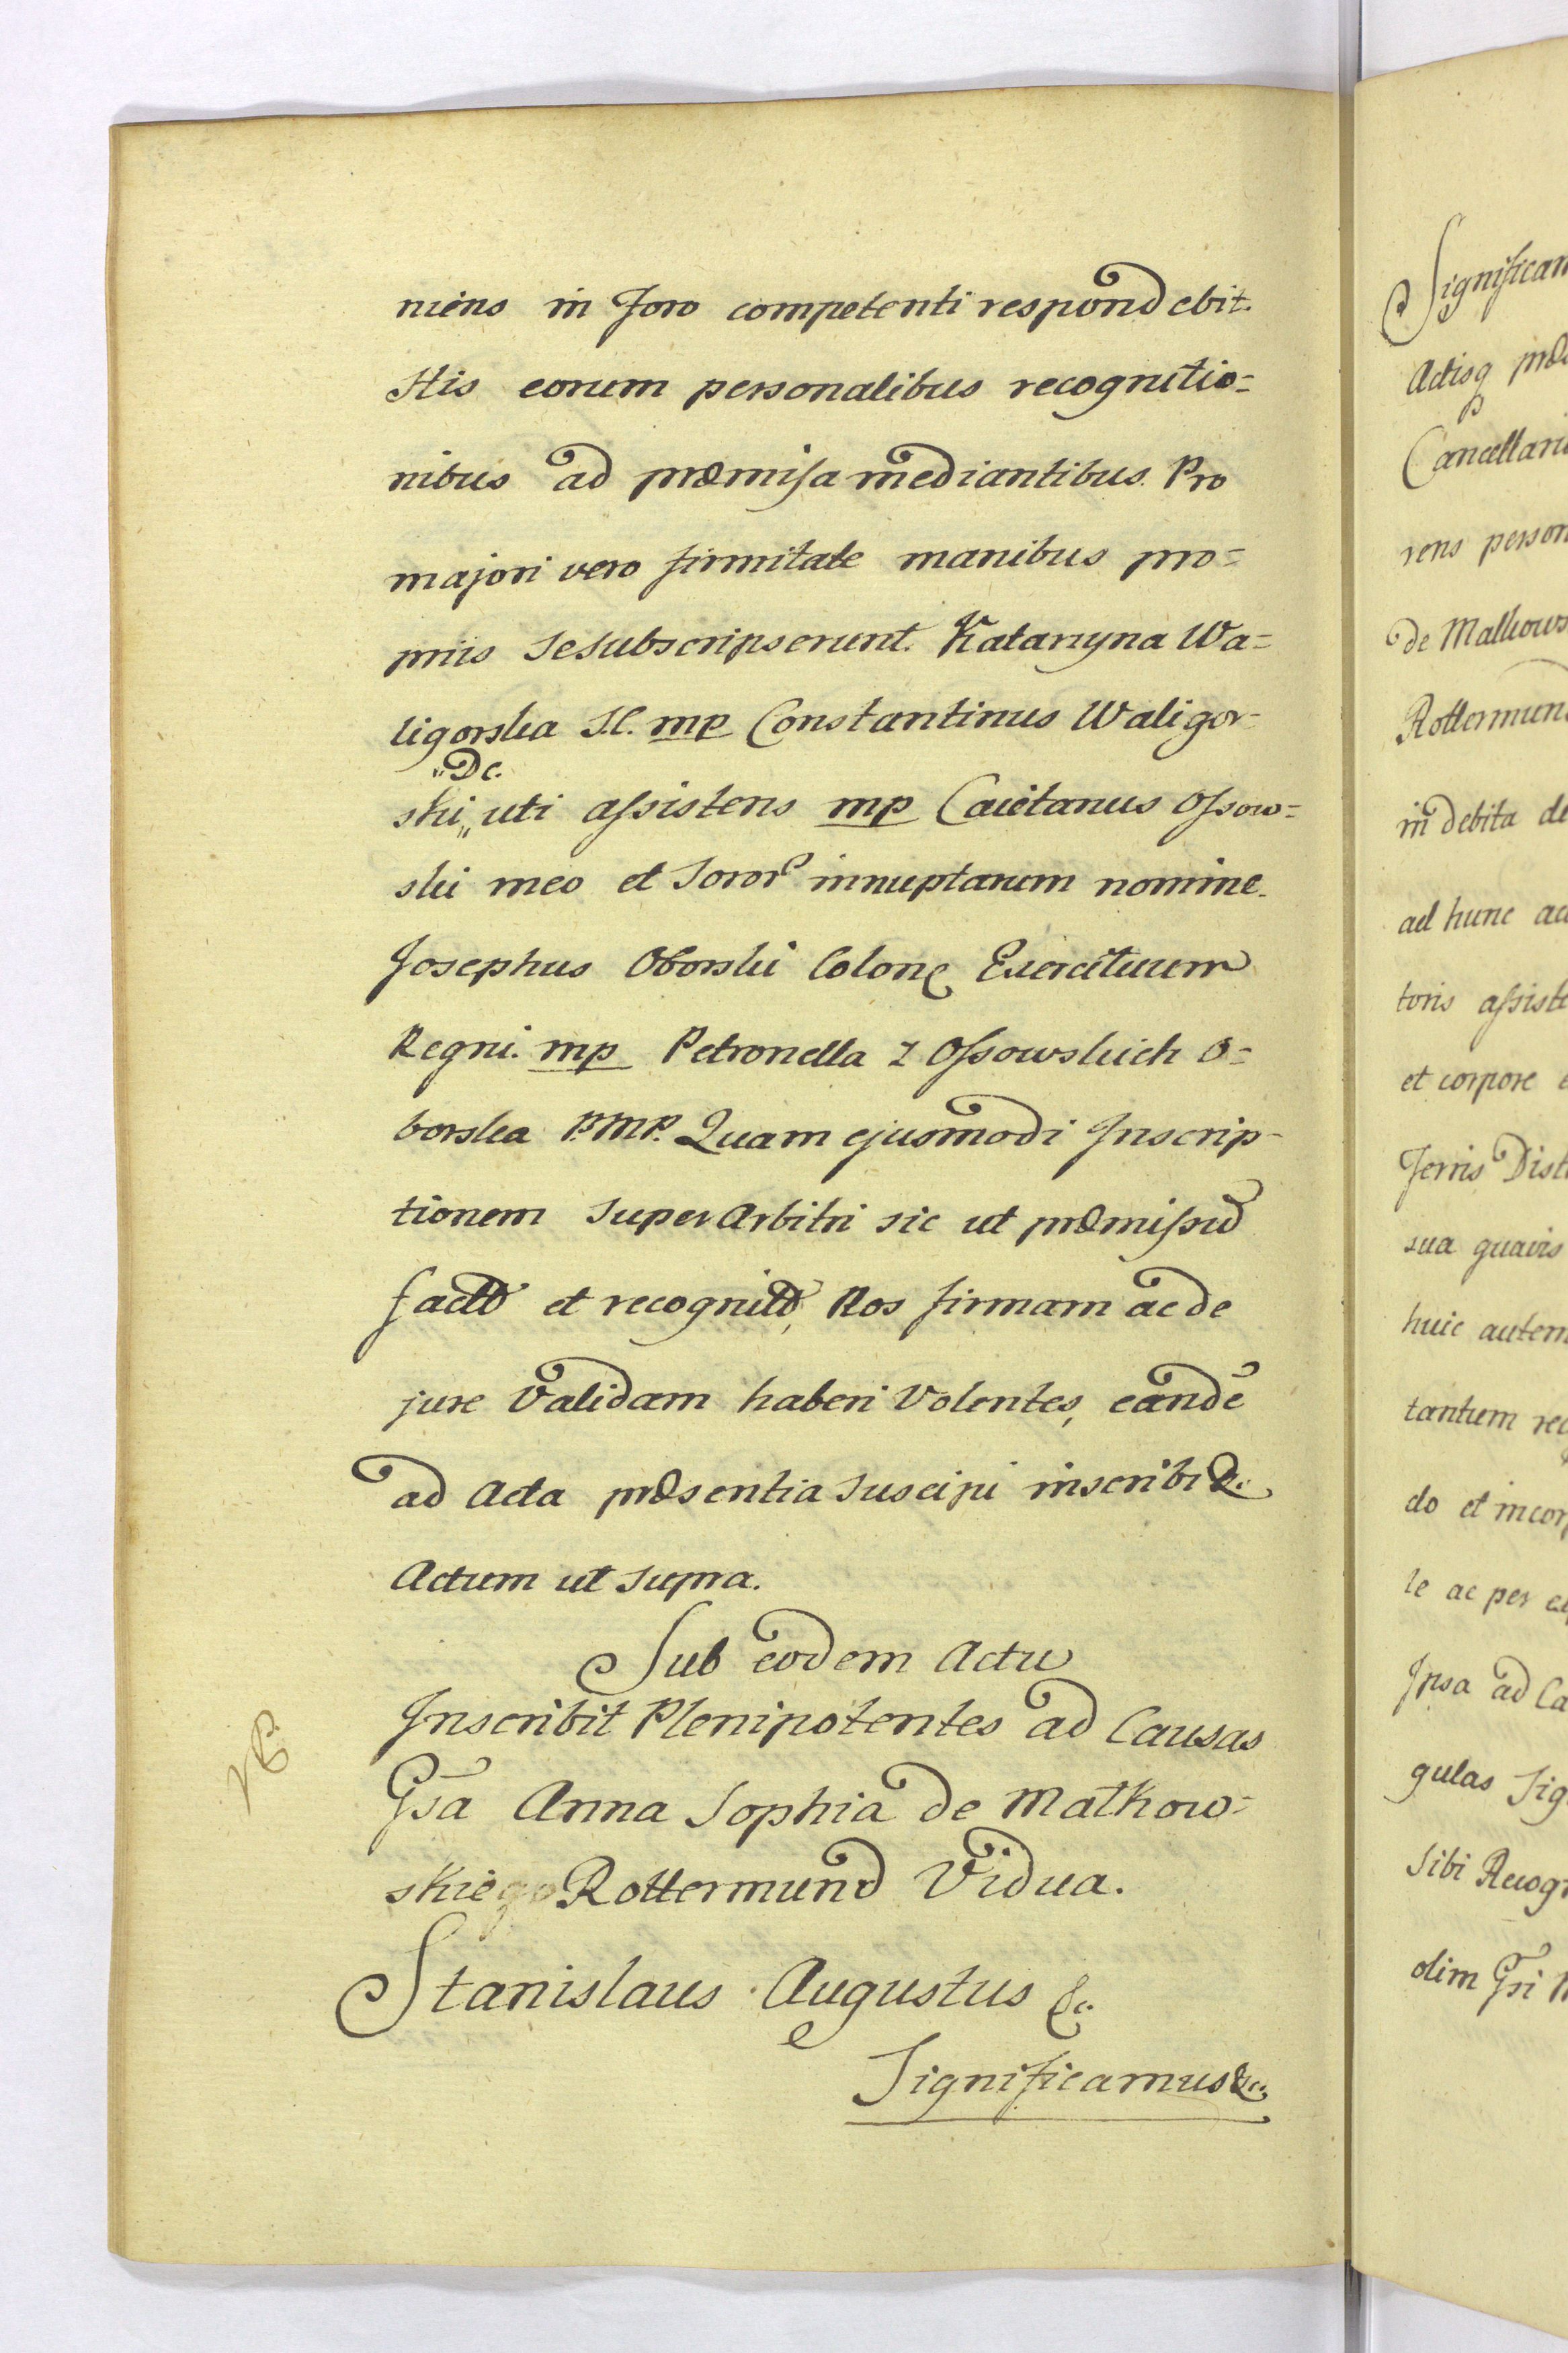 niens in Foro competenti respondebit.
His eorum personalibus recognitio=
nibus ad præmisa mediantibus. Pro
majori vero firmitate manibus pro=
priis se subscripserunt. Katarzyna Wa=
ligorska S.C. mp Constantinus Waligor=
"Dc.
ski„ uti assistens mp Caietanus Ossow=
ski meo et Soror innuptarum nomine.
Josephus Oborski Colon Exercituum
Regni. mp Petronella z Ossowskich O=
borska P.MP. Quam ejusmodi Inscrip-
tionem Superarbitri sic ut præmissũ
facto et recognito, Nos firmam ac de
jure validam haberi volentes, eandē
ad Acta præsentia suscipi inscribi &c.
Actum ut supra.
Sub eodem Actu
Inscribit Plenipotentes ad Causas
NB
Gsa Anna Sophia de Małkow=
skiego Rottermund Vidua.
Stanislaus Augustus &c.
Significamus &c.
Significam
Actisq præ
Cancellari
rens person
de Malkows
Rottermun
in debita de
ad hunc ac
toris assiste
et corpore
Terris Dist
sua quavis
huic autem
tantum rec
do et incor
le ac per e
Ipsa ad Ca
gulas Sig
sibi Recog
olim Gsi